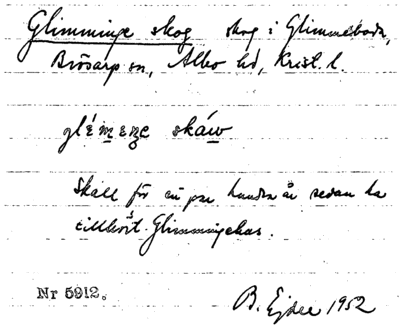 Glimminge skog skog i Glimmeboda,
Brösarp sn, Albo hd, Krist. l.
glémeŋe skáw
Skall för ett par hundra år sedan ha
tillhört Glimmingehus.
Nr 5912.
B. Ejder 1952